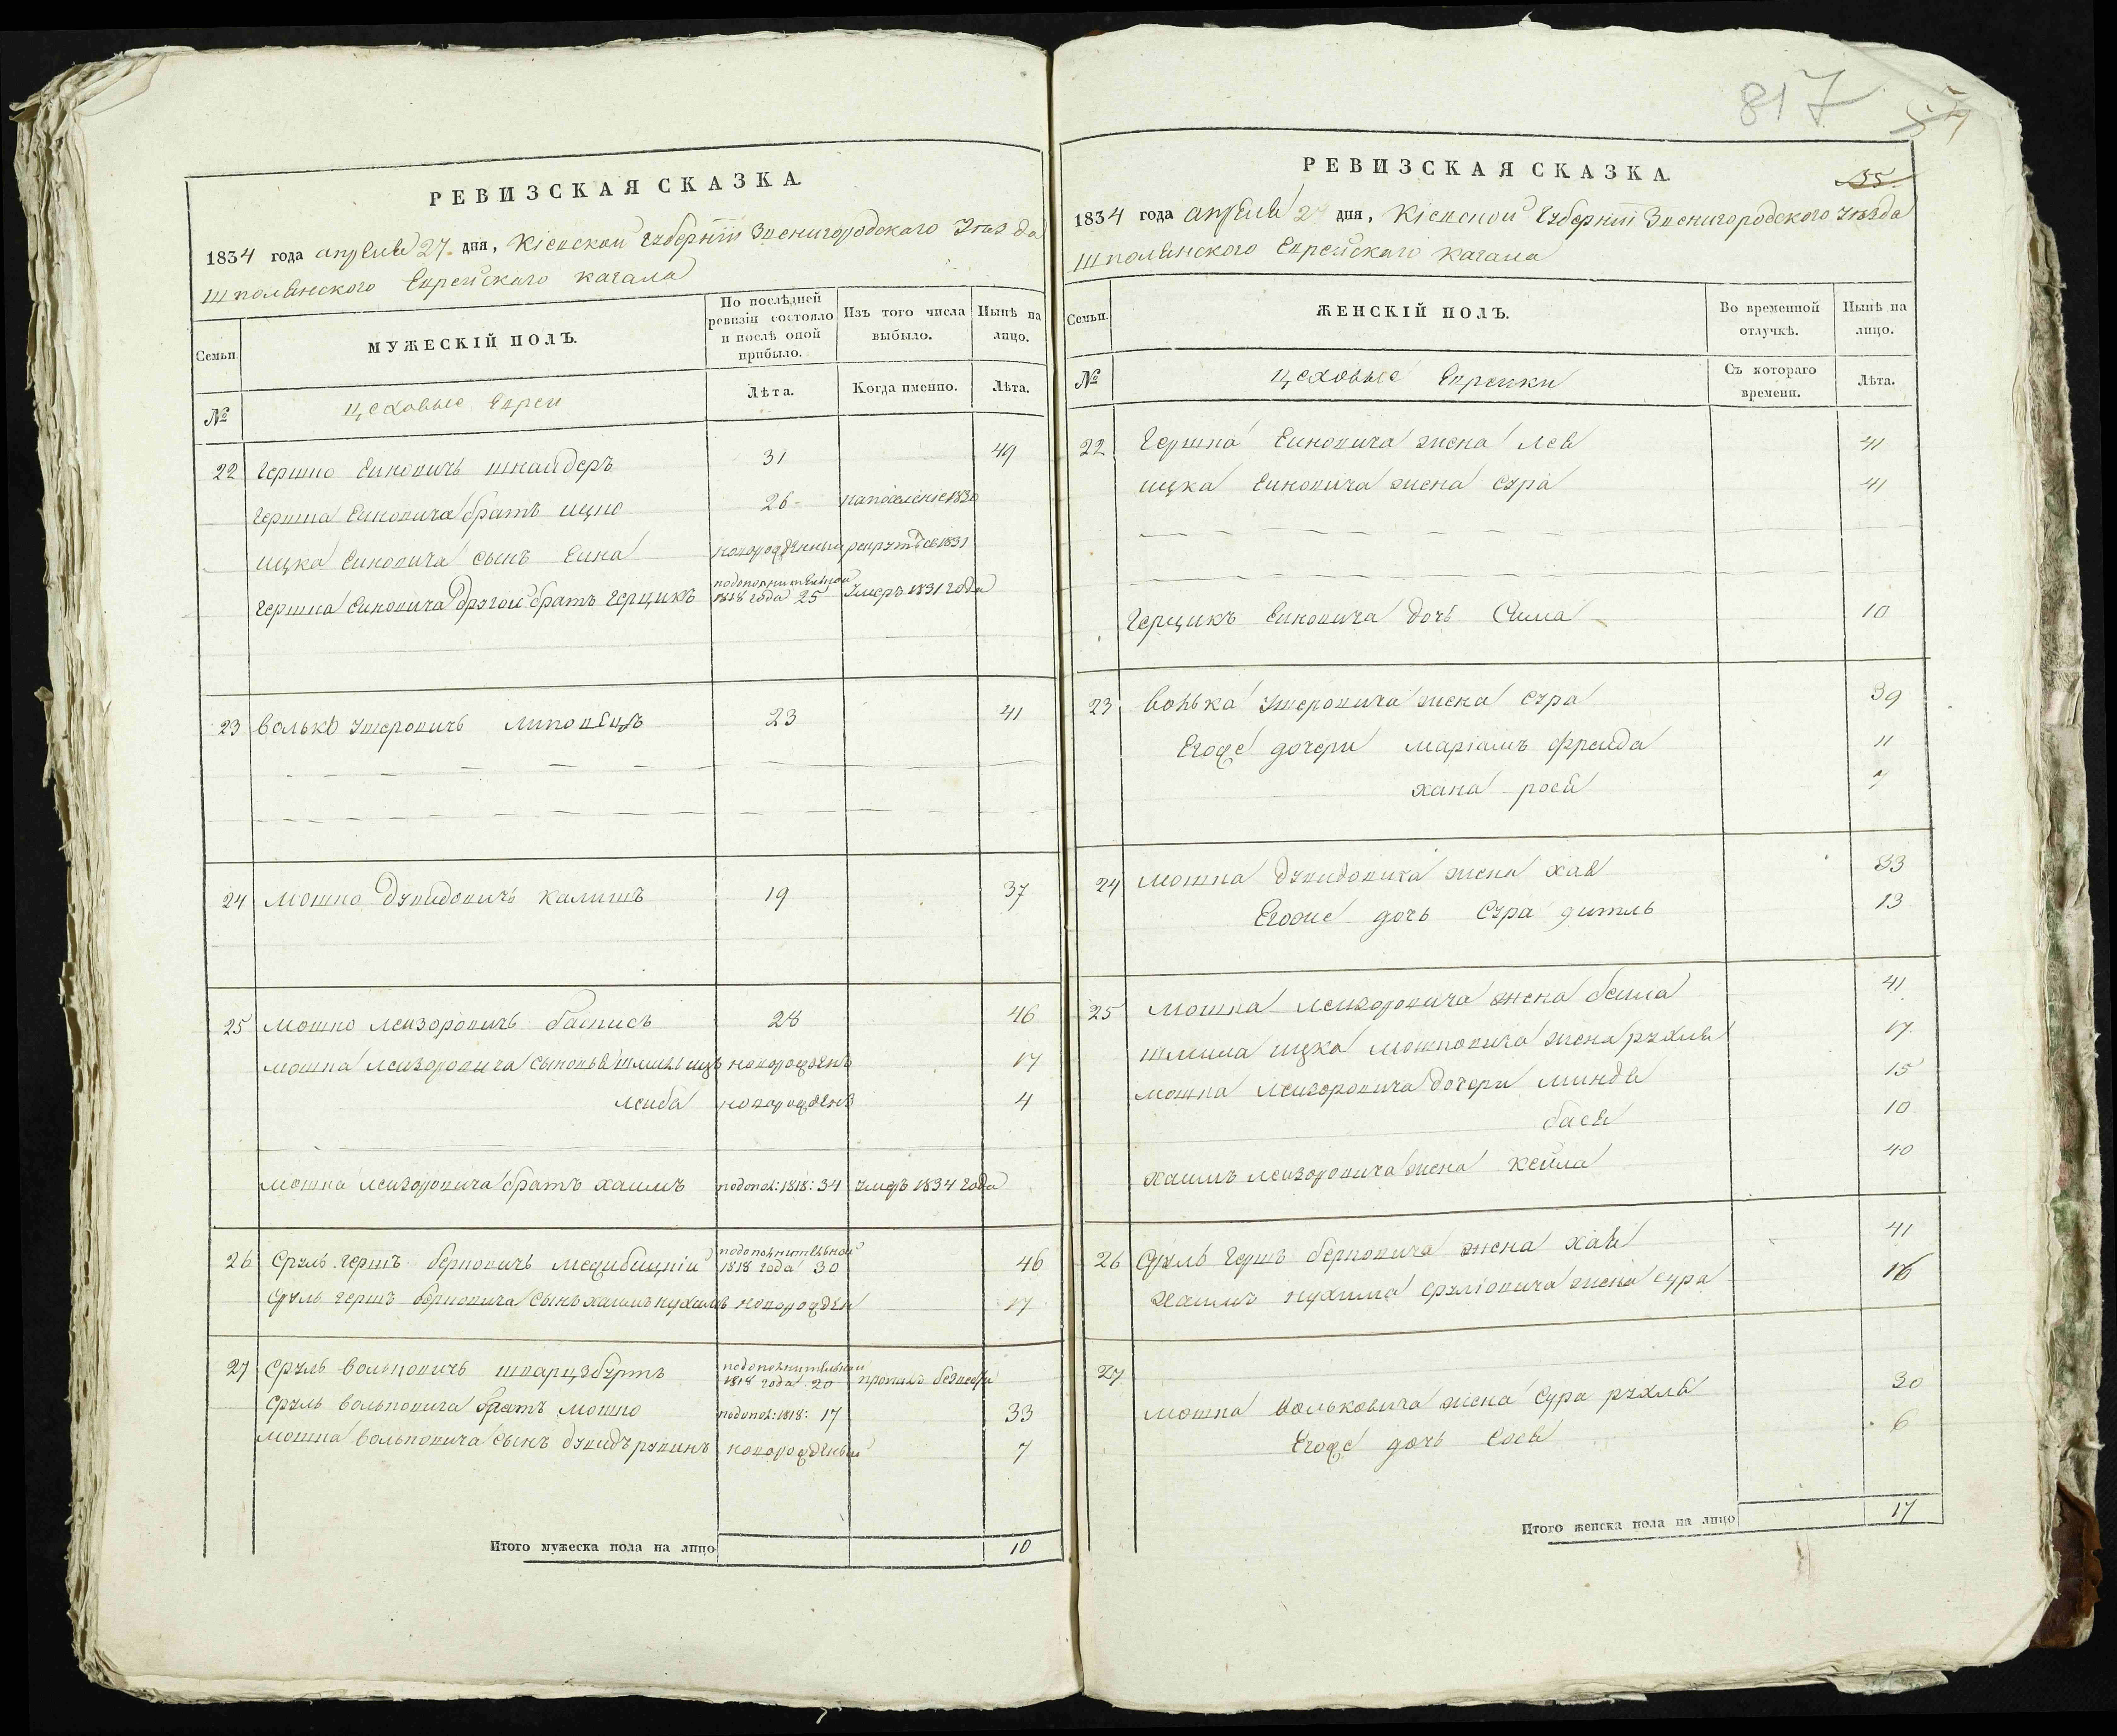 РЕВИЗСКАЯ СКАЗКА.
1834 года апреля 27 дня, Кіевской Губерніи Звенигородского Уезда
Шполянского Еврейского кагала
Семьи.
МУЖЕСКІЙ ПОЛЪ.
По послѣдней ревизіи состояло и послѣ оной прибыло.
Изъ того числа выбыло.
Нынѣ на лицо.
№
цеховые Евреи
Лѣта.
Когда именно.
Лѣта.
22 Гершко Еинович шнаидеръ 31 49
Гершка Еиновича братъ ицко 26 на поселеніе 1830
ицка Еиновича сынъ Еина новорожденный рекрутъ съ 1831
Гершка Еиновича другой братъ Герцикъ подополнительной 1818 года 25 Умеръ 1831 года
23 волько Ушеровичъ липовецъ 23 41
24 мошко Дувидовичъ калишъ 19 37
25 мошко леизоровичъ 28 46
мошка леизоровича сыновья шлиома ицъ новорожденъ 17
леиба новорожденъ 4
мошка леизоровича братъ хаимъ подопол: 1818: 34 умеръ 1834 года
26 Сруль Гершъ берковичъ межибицкіи подополнительной 1818 года 30 46
Сруль Гершъ берковича сынъ хаимъ нухимъ новорожден 17
27 Сруль вольковичъ шварцбуртъ подополнительной 1818 года 20 пропалъ безвести
Сруль вольковича братъ мошко подопол: 1818: 17 33
мошка вольковича сынъ дувидъ рувинъ новорожденый 7
Итого мужеска пола на лицо 10
817
55
РЕВИЗСКАЯ СКАЗКА.
1834 года апреля 27 дня, Кіевской Губерніи Звенигородского уезда
Шполянского Еврейского кагала
Семьи.
ЖЕНСКІЙ ПОЛЪ.
Во временной отлучкѣ.
Нынѣ на лицо.
№
цеховые Евреики
Съ котораго времени.
Лѣта.
22 Гершка Еиновича жена лея 41
ицка Еиновича жена сура 41
Герцикъ Еиновича дочь Сима 10
23 волька Ушеровича жена сура 39
Егоже дочери маріамъ фреида 11
хана рося 7
24 мошка дувидовича жена хая 33
Егоже дочь Сура дитль 13
25 мошка леизоровича жена беила 41
шлиома ицка мошковича жена рухля 17
мошка леизоровича дочери миндя 15
бася 10
хаимъ леизоровича жена кеила 40
26 Сруль Гершъ берковича жена хая 41
хаимъ нухима сруліовича жена сура 16
27
мошка вольковича жена Сура рухля 30
Егоже дочь Сося 6
Итого женска пола на лицо 17